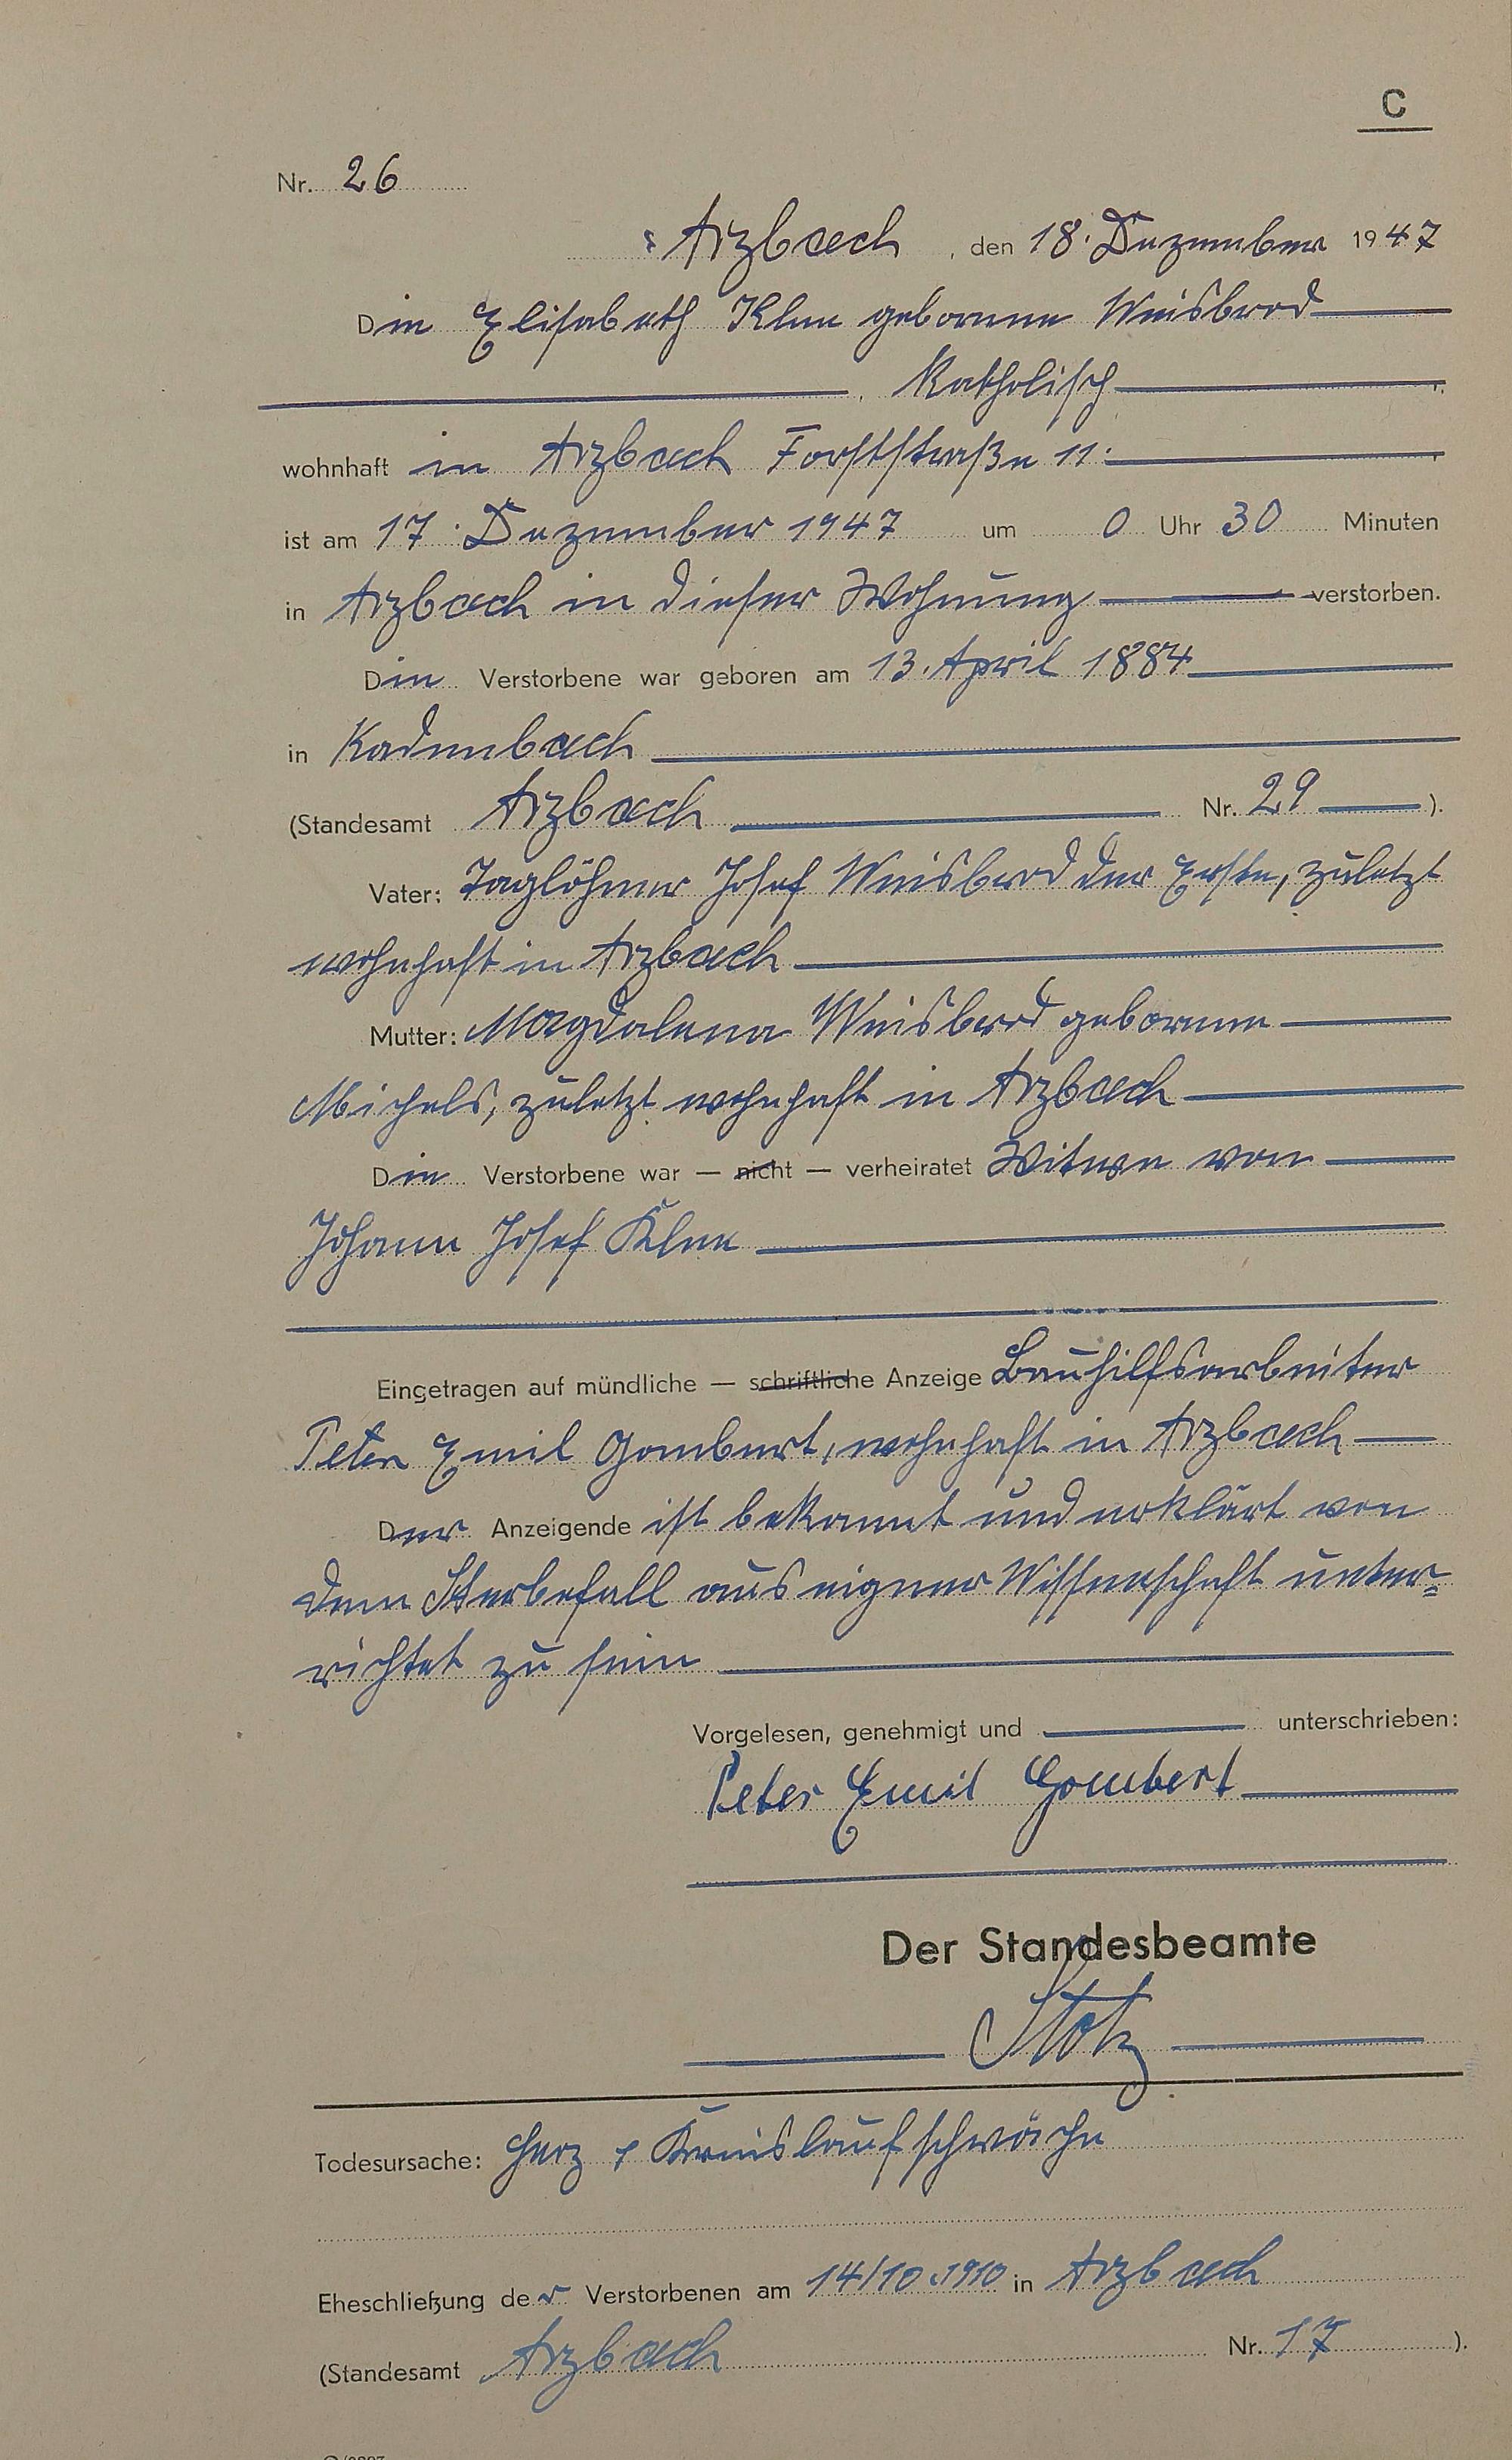 C
Nr. 26
Arzbach, den 18. Dezember 1947
Die Elisabeth Klee geborene Weisbrod
, Katholisch
wohnhaft in Arzbach Forststraße 11.
ist am 17. Dezember 1947 um 0 Uhr 30 Minuten
in Arzbach in dieser Wohnung verstorben.
Die Verstorbene war geboren am 13. April 1884
in Kadenbach
(Standesamt Arzbach Nr. 29 ).
Vater: Taglöhner Josef Weisbrod der Erste, zuletzt
wohnhaft in Arzbach
Mutter: Magdalena Weisbrod geborene
Michels, zuletzt wohnhaft in Arzbach
Die Verstorbene war — nicht — verheiratet Witwe von
Johann Josef Klee
Eingetragen auf mündliche — schriftliche Anzeige Bauhilfsarbeiter
Peter Emil Gombert, wohnhaft in Arzbach
Der Anzeigende ist bekannt und erklärt von
dem Sterbefall aus eigener Wissenschaft unter=
richtet zu sein
Vorgelesen, genehmigt und unterschrieben:
Peter Emil Gombert
Der Standesbeamte
Stotz
Todesursache: Herz + Kreislaufschwäche
Eheschließung der Verstorbenen am 14/10.1910 in Arzbach
(Standesamt Arzbach Nr. 17 ).